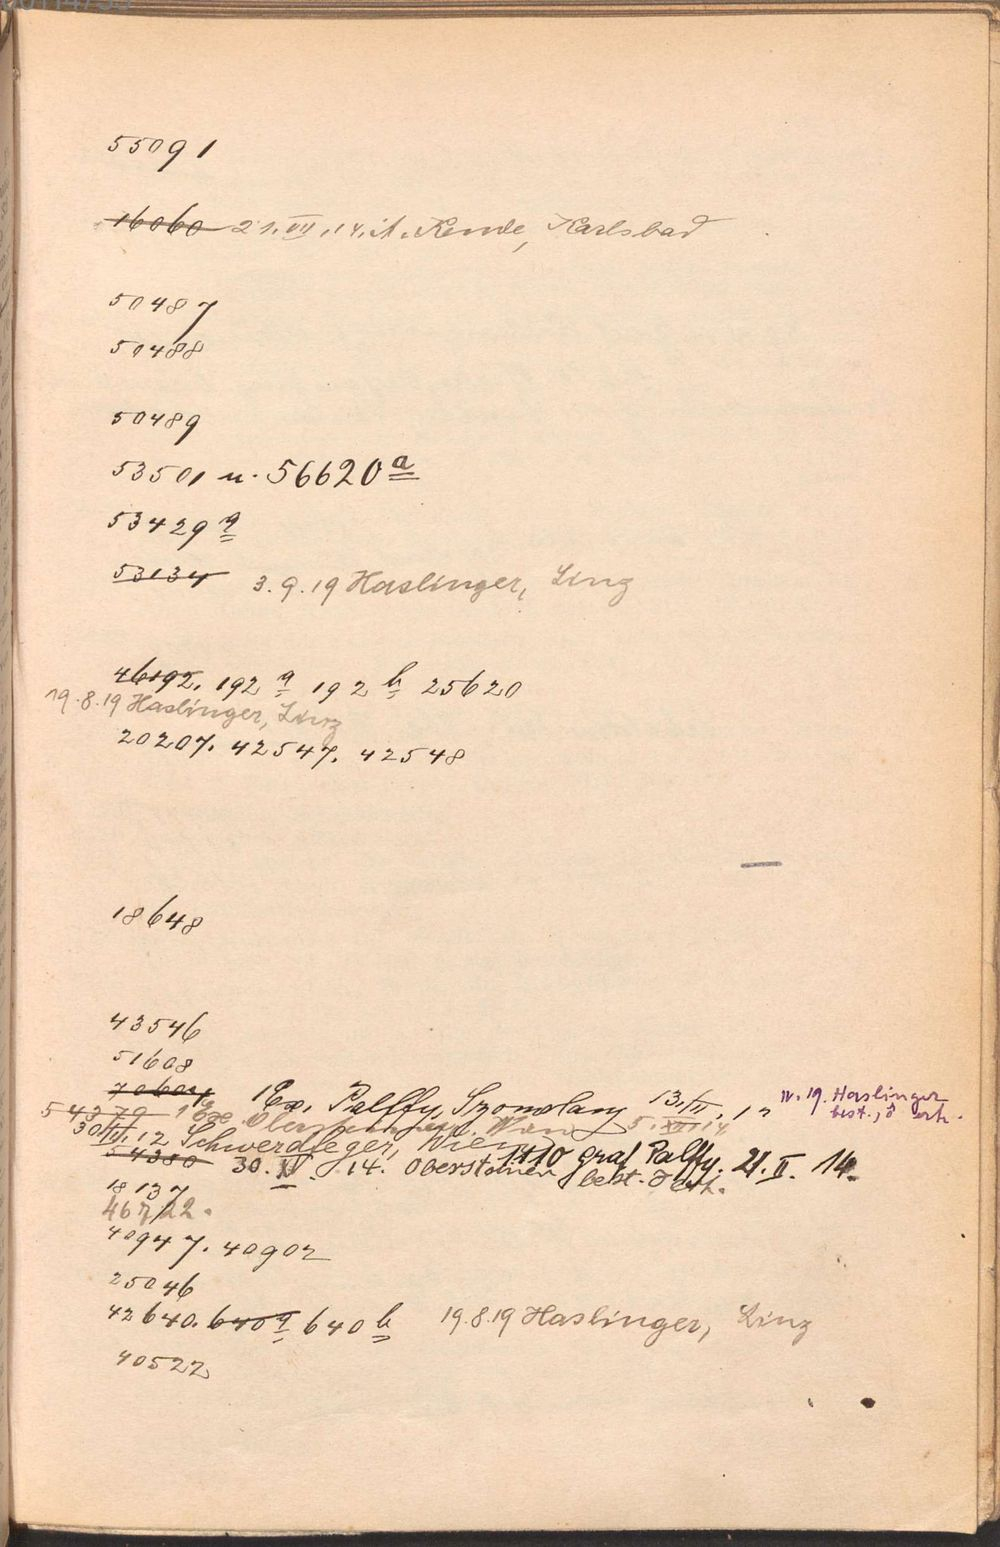 55091
16060 21. VII. 14. A. Rende, Karlsbad
50487
50488
50489
53501 u. 56620 a
53429 a
53134 3. 9. 19 Haslinger, Linz
46192. 192 a 192 b 25620
19. 8. 19 Haslinger, Linz
20207. 42547. 42548
18648
43546
51608
70604 1 Ex. Palffy, Szomolany 13. II. 12 IV. 19. Haslinger
best., erh.
54379 1 Ex. Wien 5. XII. 14
30. III. 12 Schwerdfeger, Wien
54380 30. IV. 14. Oberstolnen 1410 graf Palffy. 21. II. 14.
best. Oerh.
18137
46722.
40947. 40902
25046
42640. 640 a 640 b 19. 8. 19 Haslinger, Linz
40522